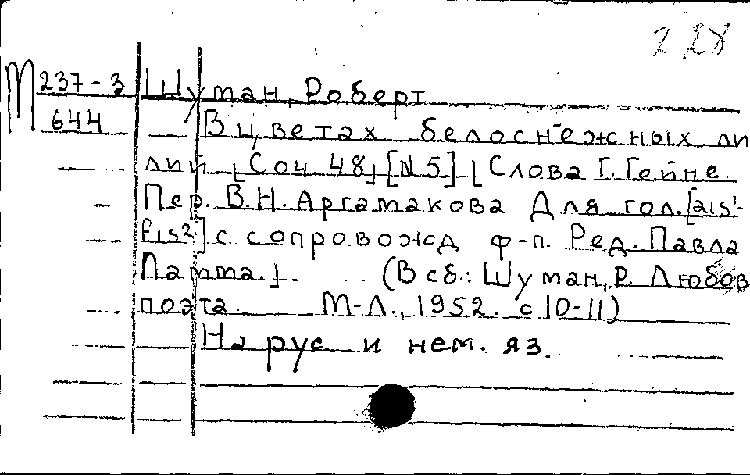 228
М 237-3 Шуман, Роберт
644 В цветах белоснежных ли
лий [Соч 48] [N5] [Слова Г. Гейне.
Пер. В.Н. Аргамакова Для гол. [ais¹-
fis²] с сопровожд ф-п. Ред. Павла
Ламма.] (В сб.: Шуман, Р. Любовь
поэта М-Л., 1952. с 10-11)
На рус и нем. яз.